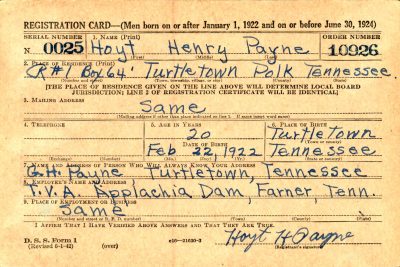 REGISTRATION CARD—(Men born on or after January 1, 1922 and on or before June 30, 1924)
SERIAL NUMBER 1. NAME (Print) ORDER NUMBER
N 0025 Hoyt Henry Payne 10926
(First) (Middle) (Last)
2. PLACE OF RESIDENCE (Print)
R#1 Box 64 Turtletown Polk Tennessee
(Number and street) (Town, township, village, or city) (County) (State)
[THE PLACE OF RESIDENCE GIVEN ON THE LINE ABOVE WILL DETERMINE LOCAL BOARD
JURISDICTION; LINE 2 OF REGISTRATION CERTIFICATE WILL BE IDENTICAL]
3. MAILING ADDRESS
Same
(Mailing address if other than place indicated on line 2. If same insert word same)
4. TELEPHONE 5. AGE IN YEARS 6. PLACE OF BIRTH
20 Turtletown
DATE OF BIRTH (Town or county)
Feb 22, 1922 Tennessee
(Exchange) (Number) (Mo.) (Day) (Yr.) (State or country)
7. NAME AND ADDRESS OF PERSON WHO WILL ALWAYS KNOW YOUR ADDRESS
G.H. Payne Turtletown, Tennessee
8. EMPLOYER'S NAME AND ADDRESS
T.V.A. Applachia Dam, Farner, Tenn.
9. PLACE OF EMPLOYMENT OR BUSINESS
Same
(Number and street or R. F. D. number) (Town) (County) (State)
I AFFIRM THAT I HAVE VERIFIED ABOVE ANSWERS AND THAT THEY ARE TRUE.
D. S. S. Form 1
(Revised 6-1-42) (over) Hoyt H Payne
(Registrant's signature)